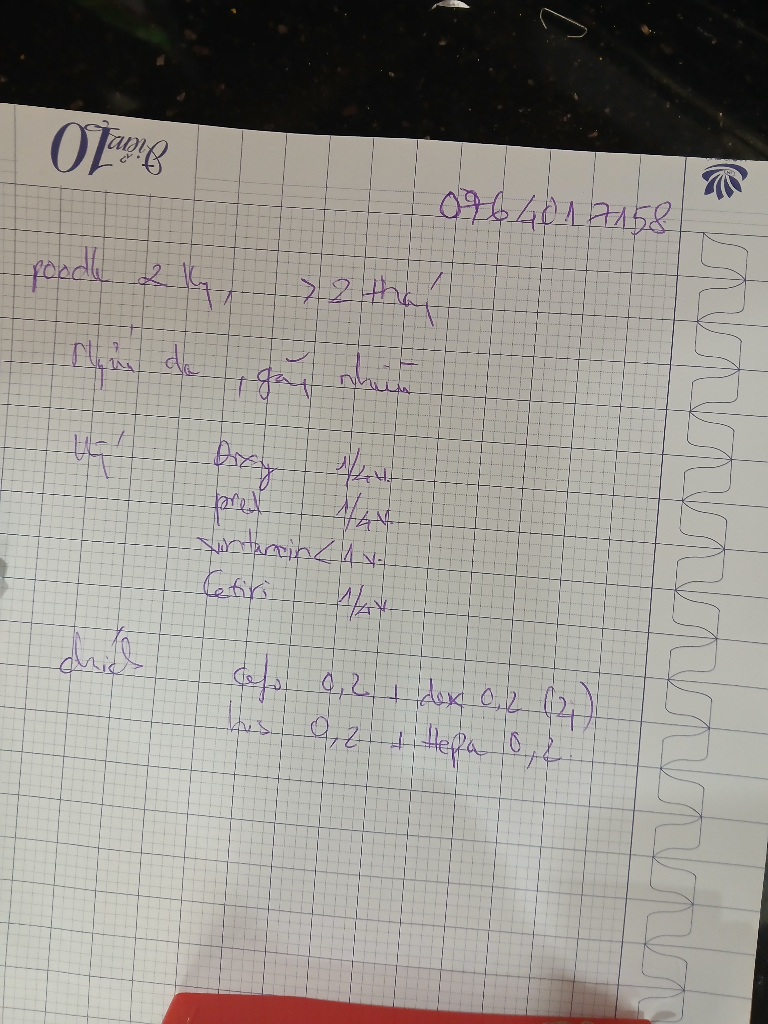 Điểm 10
0964017158
poodle 2 kg, > 2 tháng
Ngứa da, gãy nhiều
Uống Doxy 1/4 v.
pred 1/4 v.
vintamin C 1 v.
Cetiri 1/4 v
chích Cefo 0,2 + dex 0,2
0,2 + Hepa 0,2